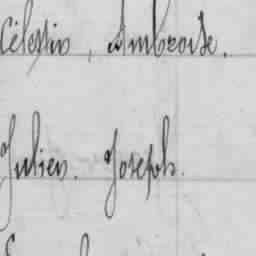 Célestin, Ambroise.
Julien. Joseph.